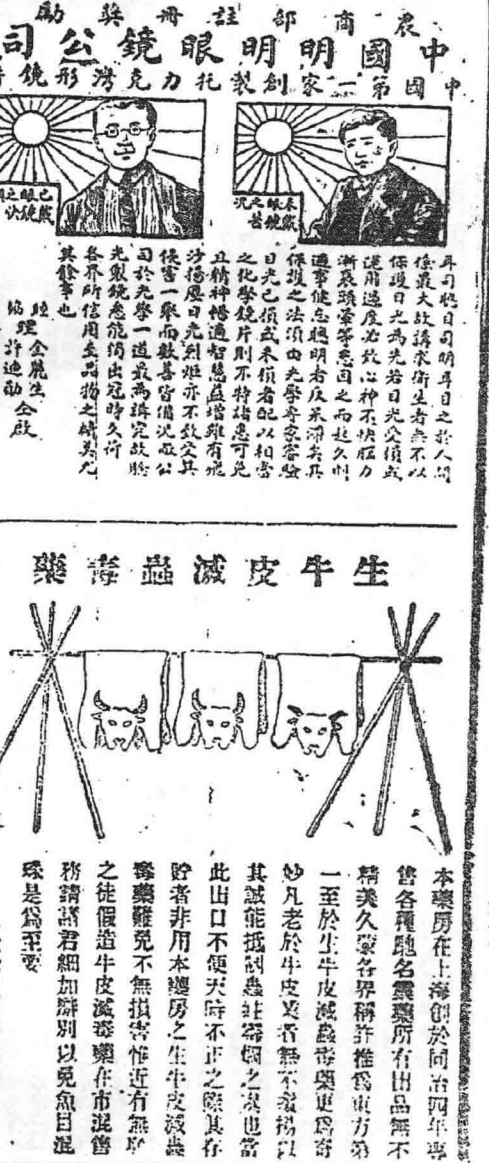 農商部註冊獎勵
中國明明眼鏡公司
中國第一家創製托力克灣形鏡
未戴眼鏡之苦況
已戴眼鏡之快
耳司聰目司明耳目之於人關
係最大故講求衛生者無不以
保護目光為先若目光受損或
運用過度必致心神不快腦力
漸衰頭暈等患因之而起久則
遇事健忘聰明者反呆滯矣其
保護之法須由光學專家審驗
目光已損或未損者配以相當
之化學鏡片則不特諸患可免
且精神暢適智慧益增雖有飛
沙揚塵日光烈亦不致受其
侵害一舉而數善皆備況敝公
司於光學一道最為講究故驗
光製鏡悉能獨出冠時久荷
各界所信用至品物之精美尤
其餘事也
經理金麗生
協理許迪勛仝啟
生牛皮滅蟲毒藥
本藥房在上海創於同治四年專
售各種馳名靈藥所有出品無不
精美久蒙各界稱許推為東方第
一至於生牛皮滅蟲毒藥更為奇
妙凡老於牛皮業者無不交相贊
其誠能抵制蟲蛀霉爛之患也當
此出口不便天時不正之際其存
貯者非用本藥房之生牛皮滅蟲
毒藥難免不無損害惟近有無恥
之徒假造牛皮滅毒藥在市混售
務請諸君細加辨別以免魚目混
珠是為至要